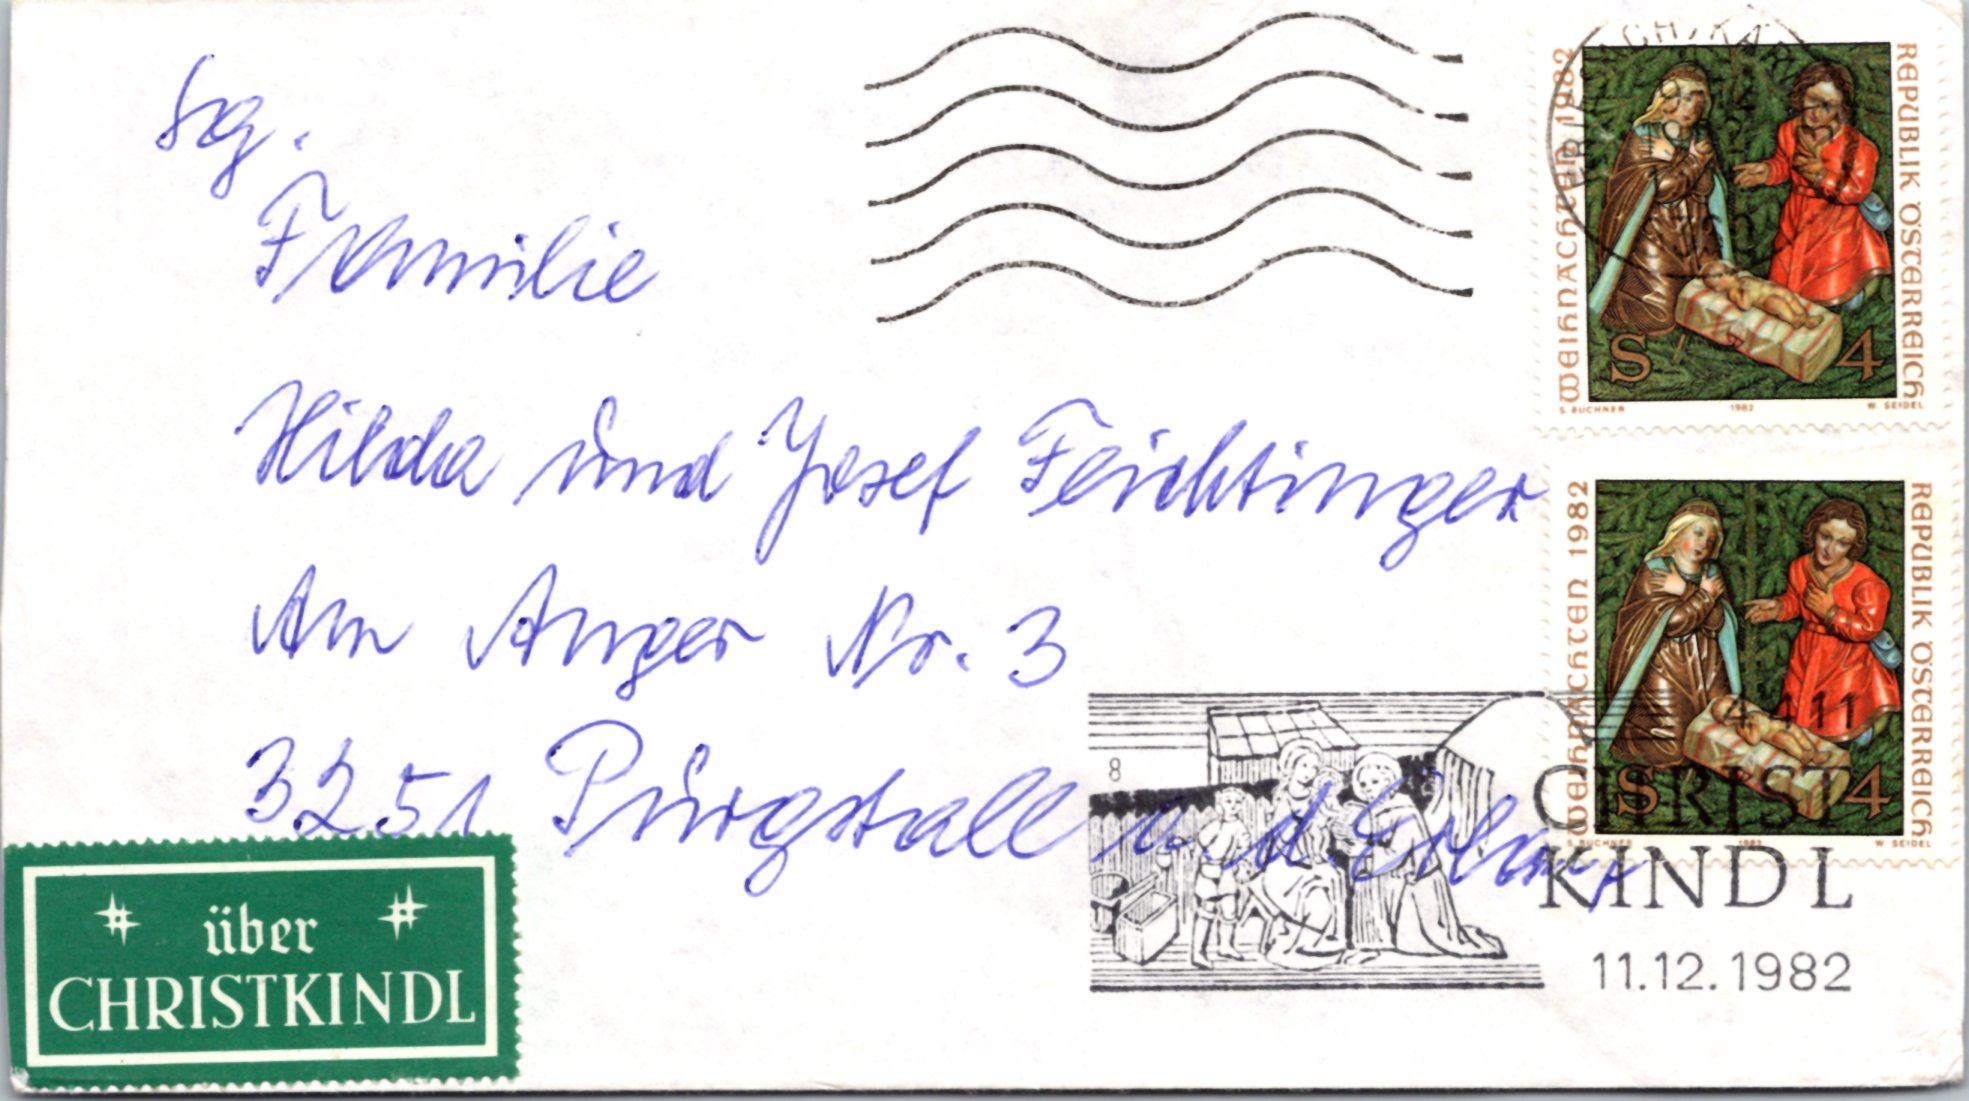 Sg.
Familie
Hilda und Josef Feichtinger
Am Anger Nr. 3
3251 Purgstall a. d. Erlauf
über
CHRISTKINDL
WEIHNACHTEN 1982
REPUBLIK ÖSTERREICH
S 4
S BUCHNER 1982 W. SEIDEL
WEIHNACHTEN 1982
REPUBLIK ÖSTERREICH
S 4
S BUCHNER 1982 W. SEIDEL
8
4411
CHRIST
KINDL
11.12.1982